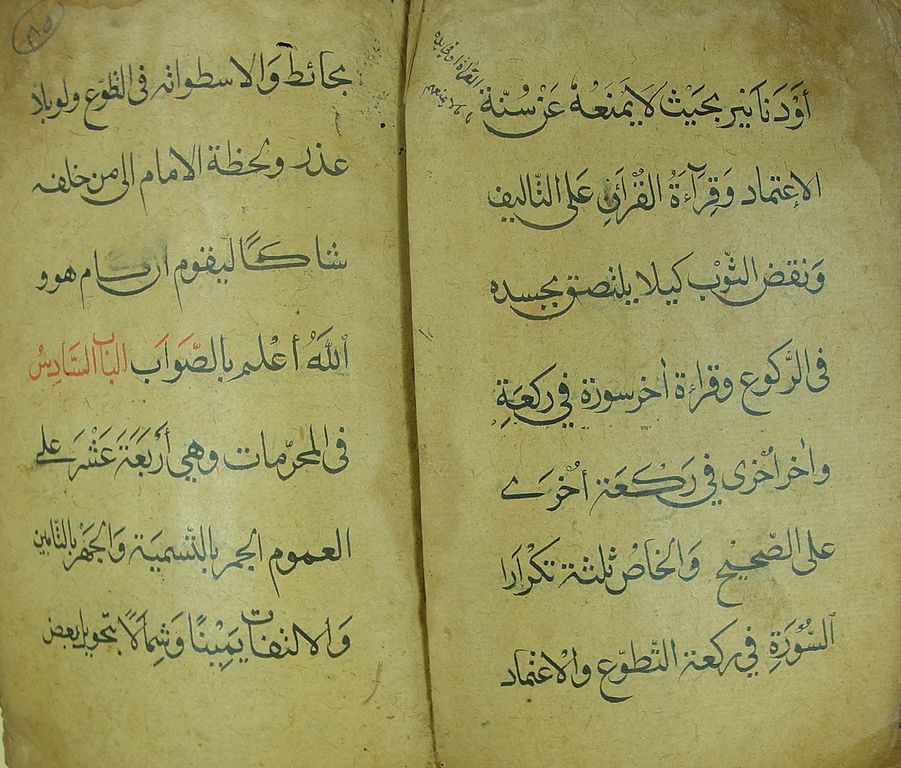 أَوْدَنَانِير بحَيْث لَا يَمنَعُهُ عَنْ سُنّة
الاعتماد وَقِرآءَةُ القُرْآنِ عَلَى التّاليف
وَنقض الثّوْب كيلا يلتصق بجسده
فى الرّكوع وقراءة اٰخر سورة في ركعَةٍ
واٰخر اُخْرٰى في رَكْعَة أُخْرَى
على الصّحيْح وَالخَاصُ ثلثة تكرَارا
السُّوْرَةِ فِي ركعة التّطوّع والاعتماد
بحائط وَالاسطوانة فى التّطوّع ولو بلا
عذر ولحظة الامام الى من خلفه
شاكًا ليقوم ان قام هو و
اللّٰهُ أعْلم بالصّوَاب الباب السَّادِسُ
فى المحرّمات وهي أَرْبَعَةَ عَشَرَ على
العموم الجهر بالتّسمِيَة وَالجَهْر بالتّامين
وَالالتفات يَمِيْنًا وَشِمَالًا بتحويل بعض